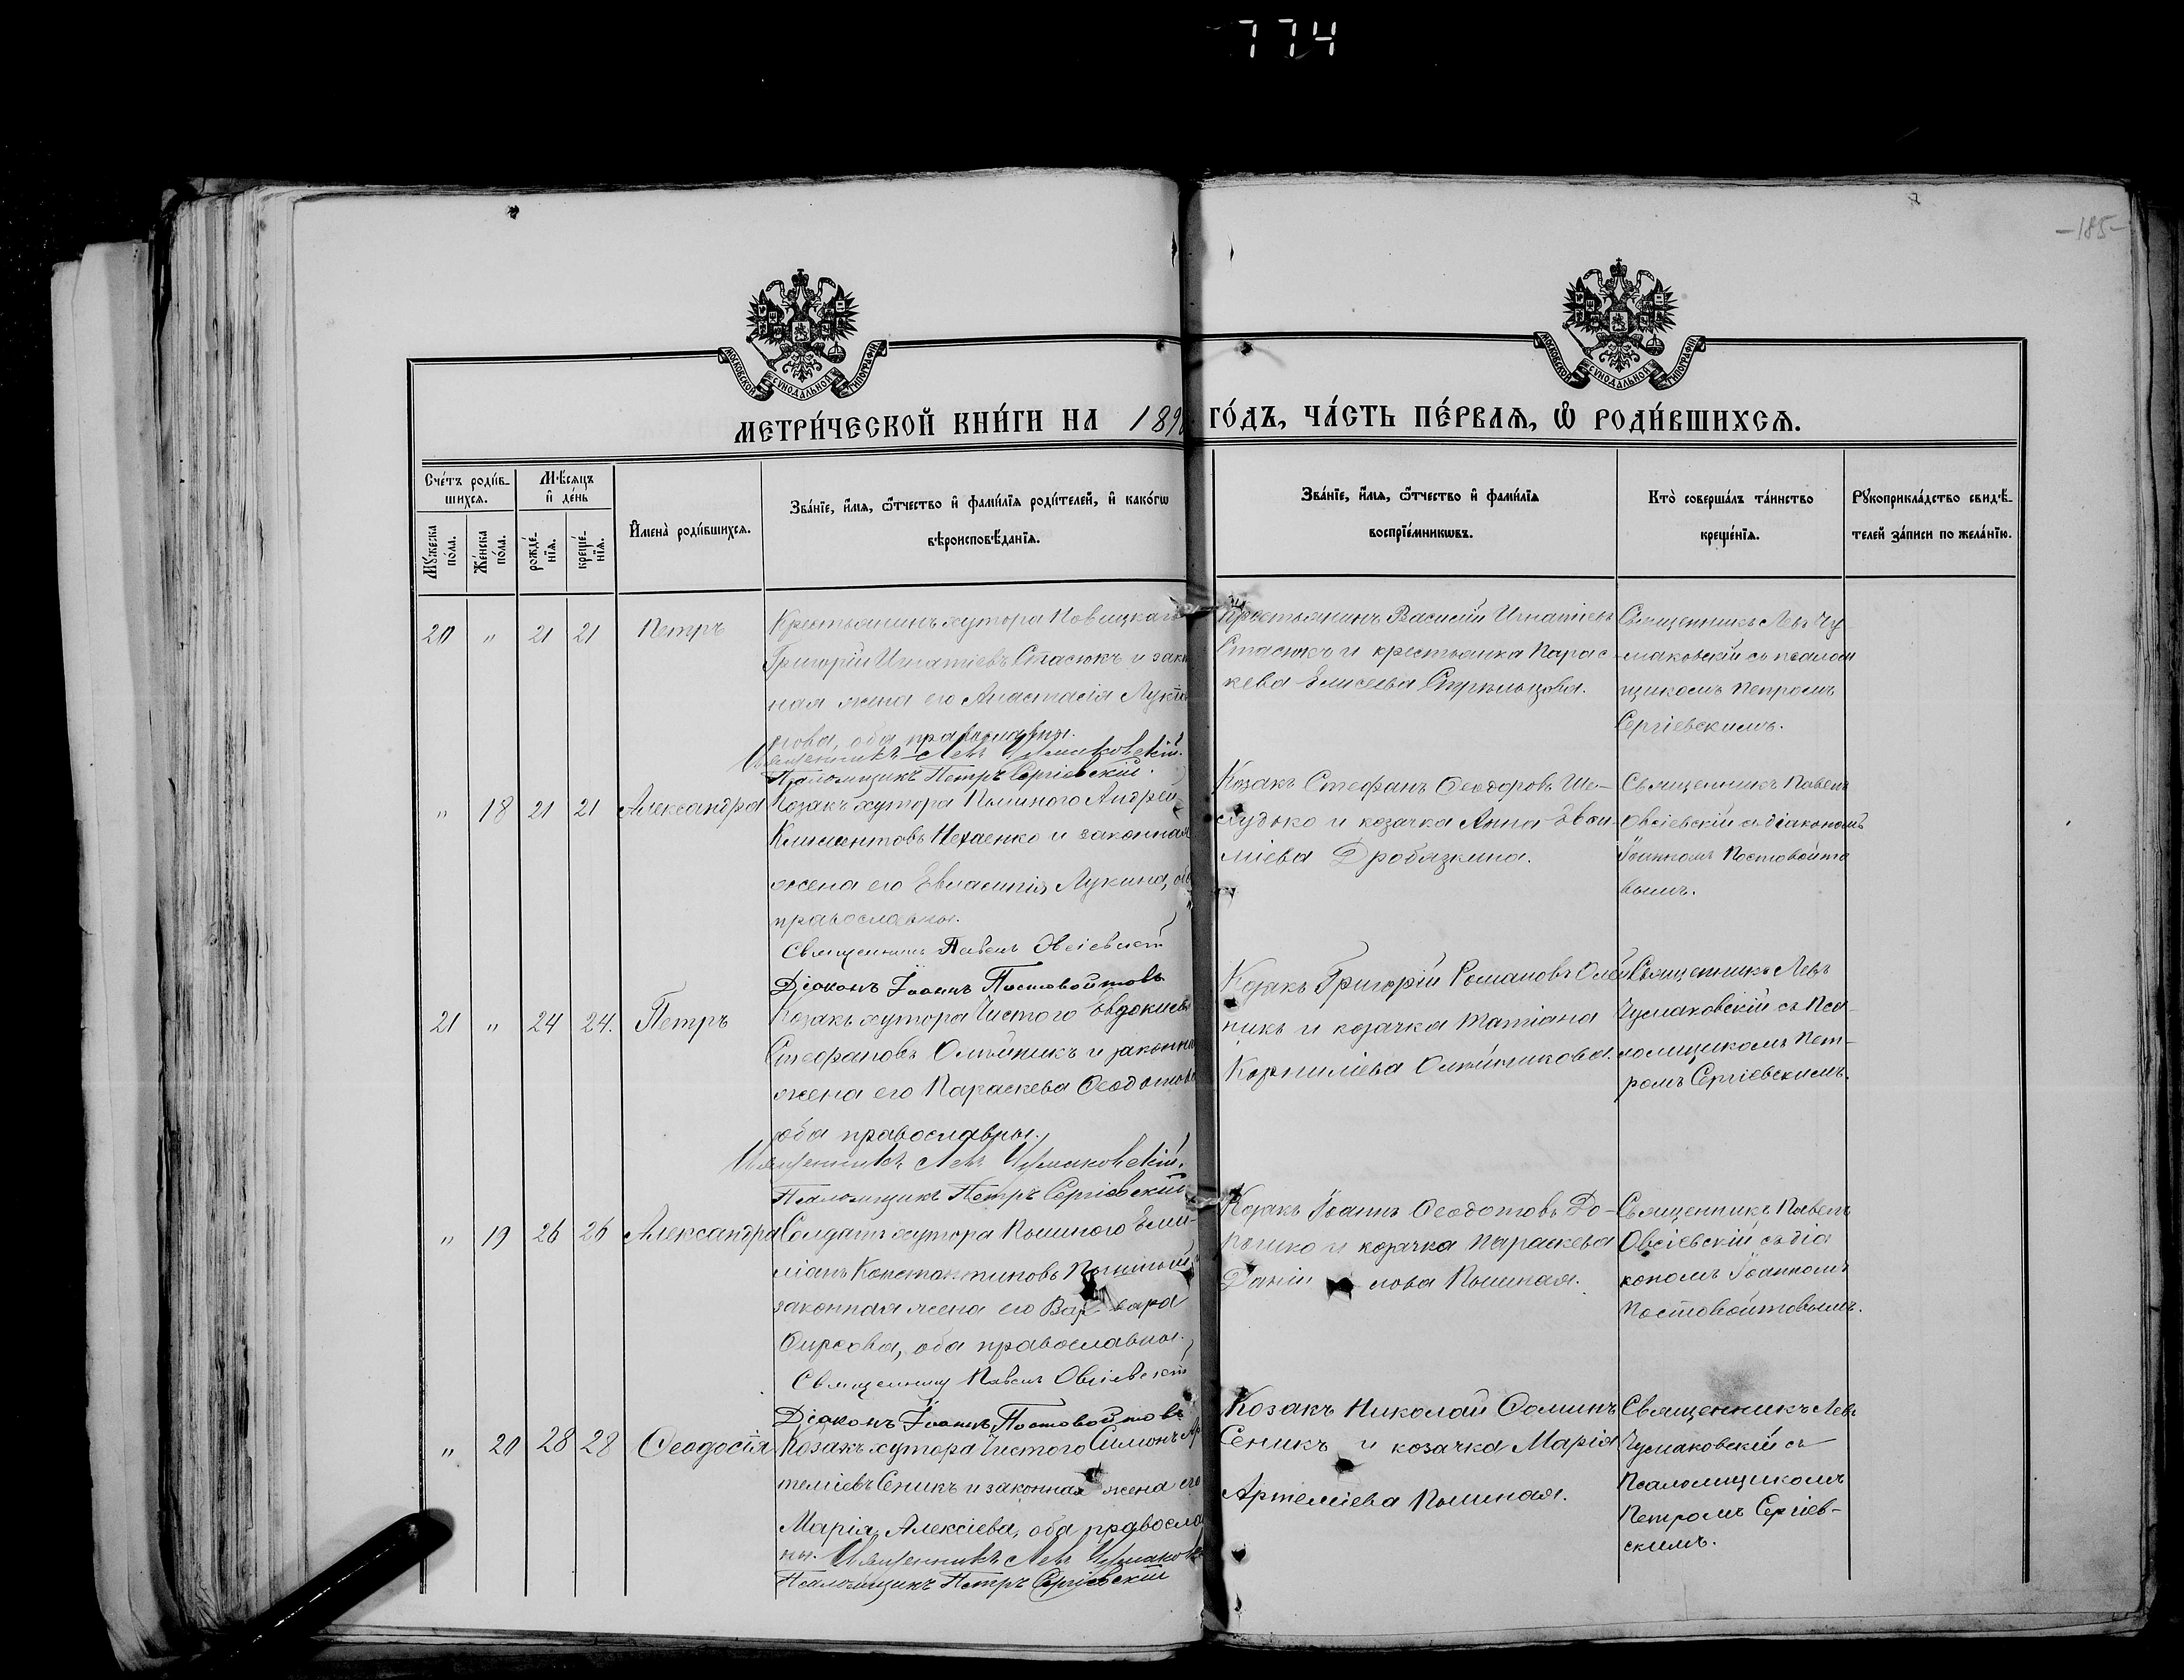 774
-185-
МОСКОВСКОЙ СѴНОДАЛЬНОЙ ТИПОГРАФІИ
МОСКОВСКОЙ СѴНОДАЛЬНОЙ ТИПОГРАФІИ
МЕТРИ́ЧЕСКОЙ КНИ́ГИ НА 189 ГО́ДЪ, ЧА́СТЬ ПЕ́РВАѦ, Ѿ РОДИ́ВШИХСѦ.
Сче́тъ роди́в-
шихсѧ.
Мѣ́сѧцъ
и҆ де́нь
Мꙋ́жеска
по́ла.
Же́нска
по́ла.
рожде́-
нїѧ.
креще́-
нїѧ.
И҆мена̀ роди́вшихсѧ.
Зва́нїе, и҆́мѧ, ѻ҆́тчество и҆ фами́лїѧ роди́телей, и҆ како́гѡ
вѣроисповѣ́данїѧ.
Зва́нїе, и҆́мѧ, ѻ҆́тчество и҆ фами́лїѧ
воспрїе́мникѡвъ.
Кто̀ соверша́лъ та́инство
креще́нїѧ.
Рꙋкоприкла́дство свидѣ́-
телей за́писи по жела́нїю.
20 " 21 21 Петръ
Крестьянинъ хутора
Григорій Игнатіевъ Стасюкъ и закон
ная жена его Анастасія
нова, оба православны.
Священникъ Левъ Чумаковскій.
Псаломщикъ Петръ Сергіевскій.
Крестьянинъ Василій Игнатіевъ
Стасюкъ и крестьянка Парас-
кева Елисеева Стрѣльцова.
Священникъ Левъ Чу-
маковскій съ псалом
щикомъ Петромъ
Сергіевскимъ.
" 18 21 21 Александра
Козакъ хутора Андрей
Климентовъ и законная
жена его Евлампія Лукина, об
православны.
Священникъ Павелъ Овсіевскій
Діаконъ Іоаннъ Постовойтовъ
Козакъ Стефанъ Ѳеодоровъ Ше-
лудько и козачка Анна Евѳи-
міева Дробязкина.
Священникъ Павелъ
Овсіевскій съ діакономъ
Іоанномъ Постовойто
вымъ.
21 " 24 24. Петръ
Козакъ хутора Чистого Евдокимъ
Стефановъ Олѣйникъ и законна
жена его Параскева Ѳеодотова
оба православны.
Священникъ Левъ Чумаковскій.
Псаломщикъ Петръ Сергіевскій
Козакъ Григорій Романовъ Олѣй
никъ и козачка Татіана
Корниліева Олѣйникова.
Священникъ Левъ
Чумаковскій съ Пса-
ломщикомъ Пет-
ромъ Сергіевскимъ.
" 19 26 26 Александра
Солдатъ хутора Еми-
ліанъ Константиновъ
законная жена его Вар вара
Ѳирсова, оба православны.
Священникъ Павелъ Овсіевскій
Діаконъ Іоаннъ Постовойтовъ
Козакъ Іоаннъ Ѳеодотовъ
и козачка Параскева
Даніи лова
Священникъ Павелъ
Овсіевскій съ діа
кономъ Іоанномъ
Постовойтовымъ.
" 20 28 28 Ѳеодосія
Козакъ хутора Чистого Симонъ Ар
теміевъ Сеникъ и законная жена его
Марія Алексіева, оба православ
ны. Священникъ Левъ Чумаковск
Псаломщикъ Петръ Сергіевскій
Козакъ Николай Ѳоминъ
Сеникъ и козачка Марія
Артеміева
Священникъ Левъ
Чумаковскій съ
Псаломщикомъ
Петромъ Сергіев-
скимъ.